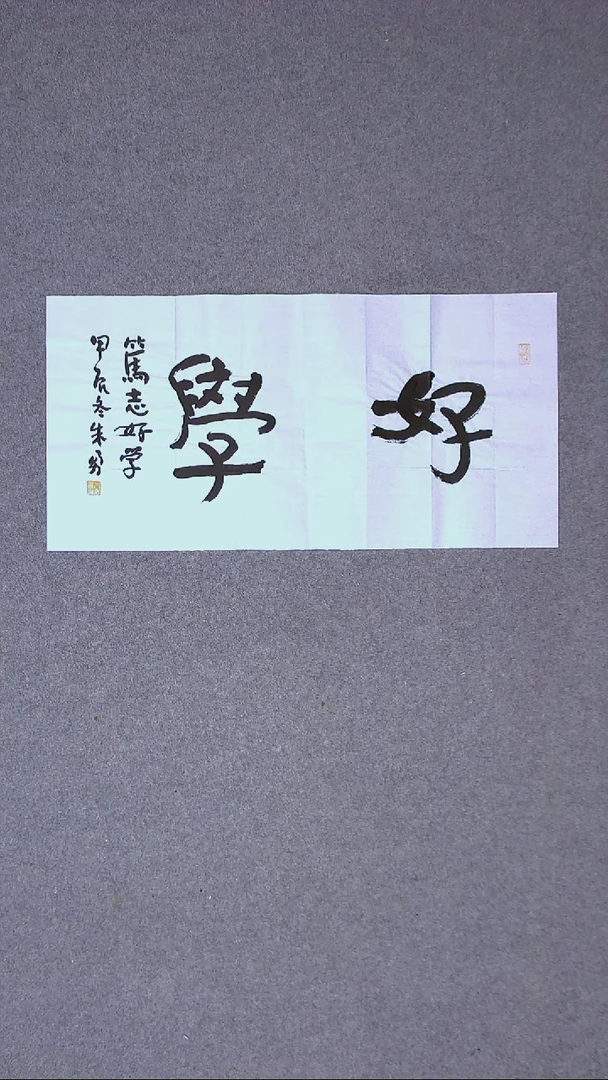 好學
篤志好学
甲辰冬朱